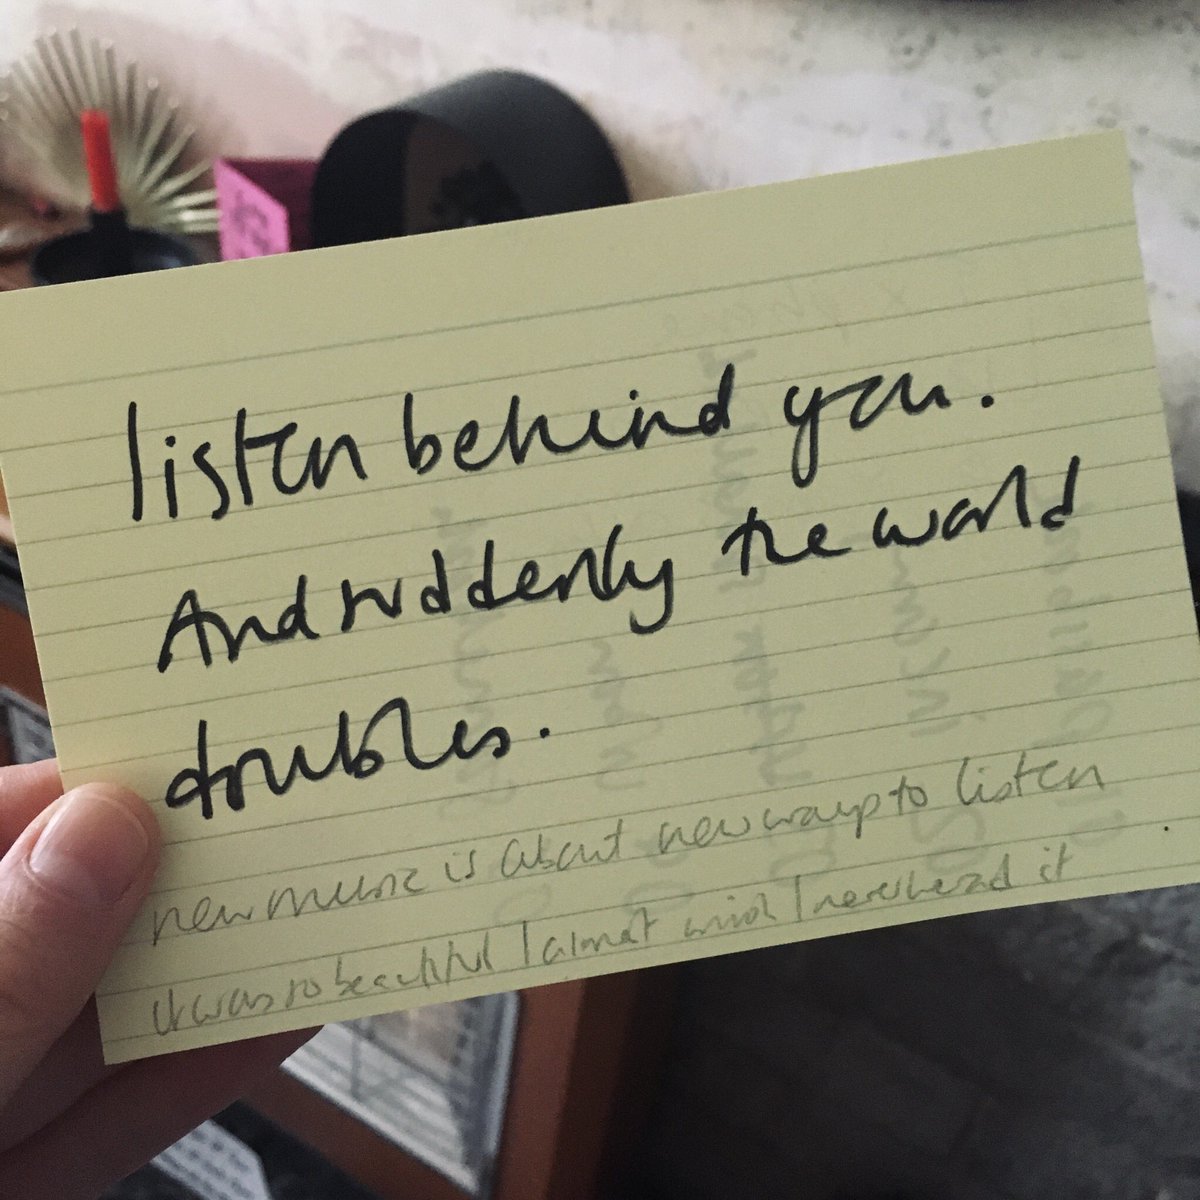 listen behind you.
And suddenly the world
doubles.
new music is about new ways to listen
it was so beautiful I almost wish I never heard it